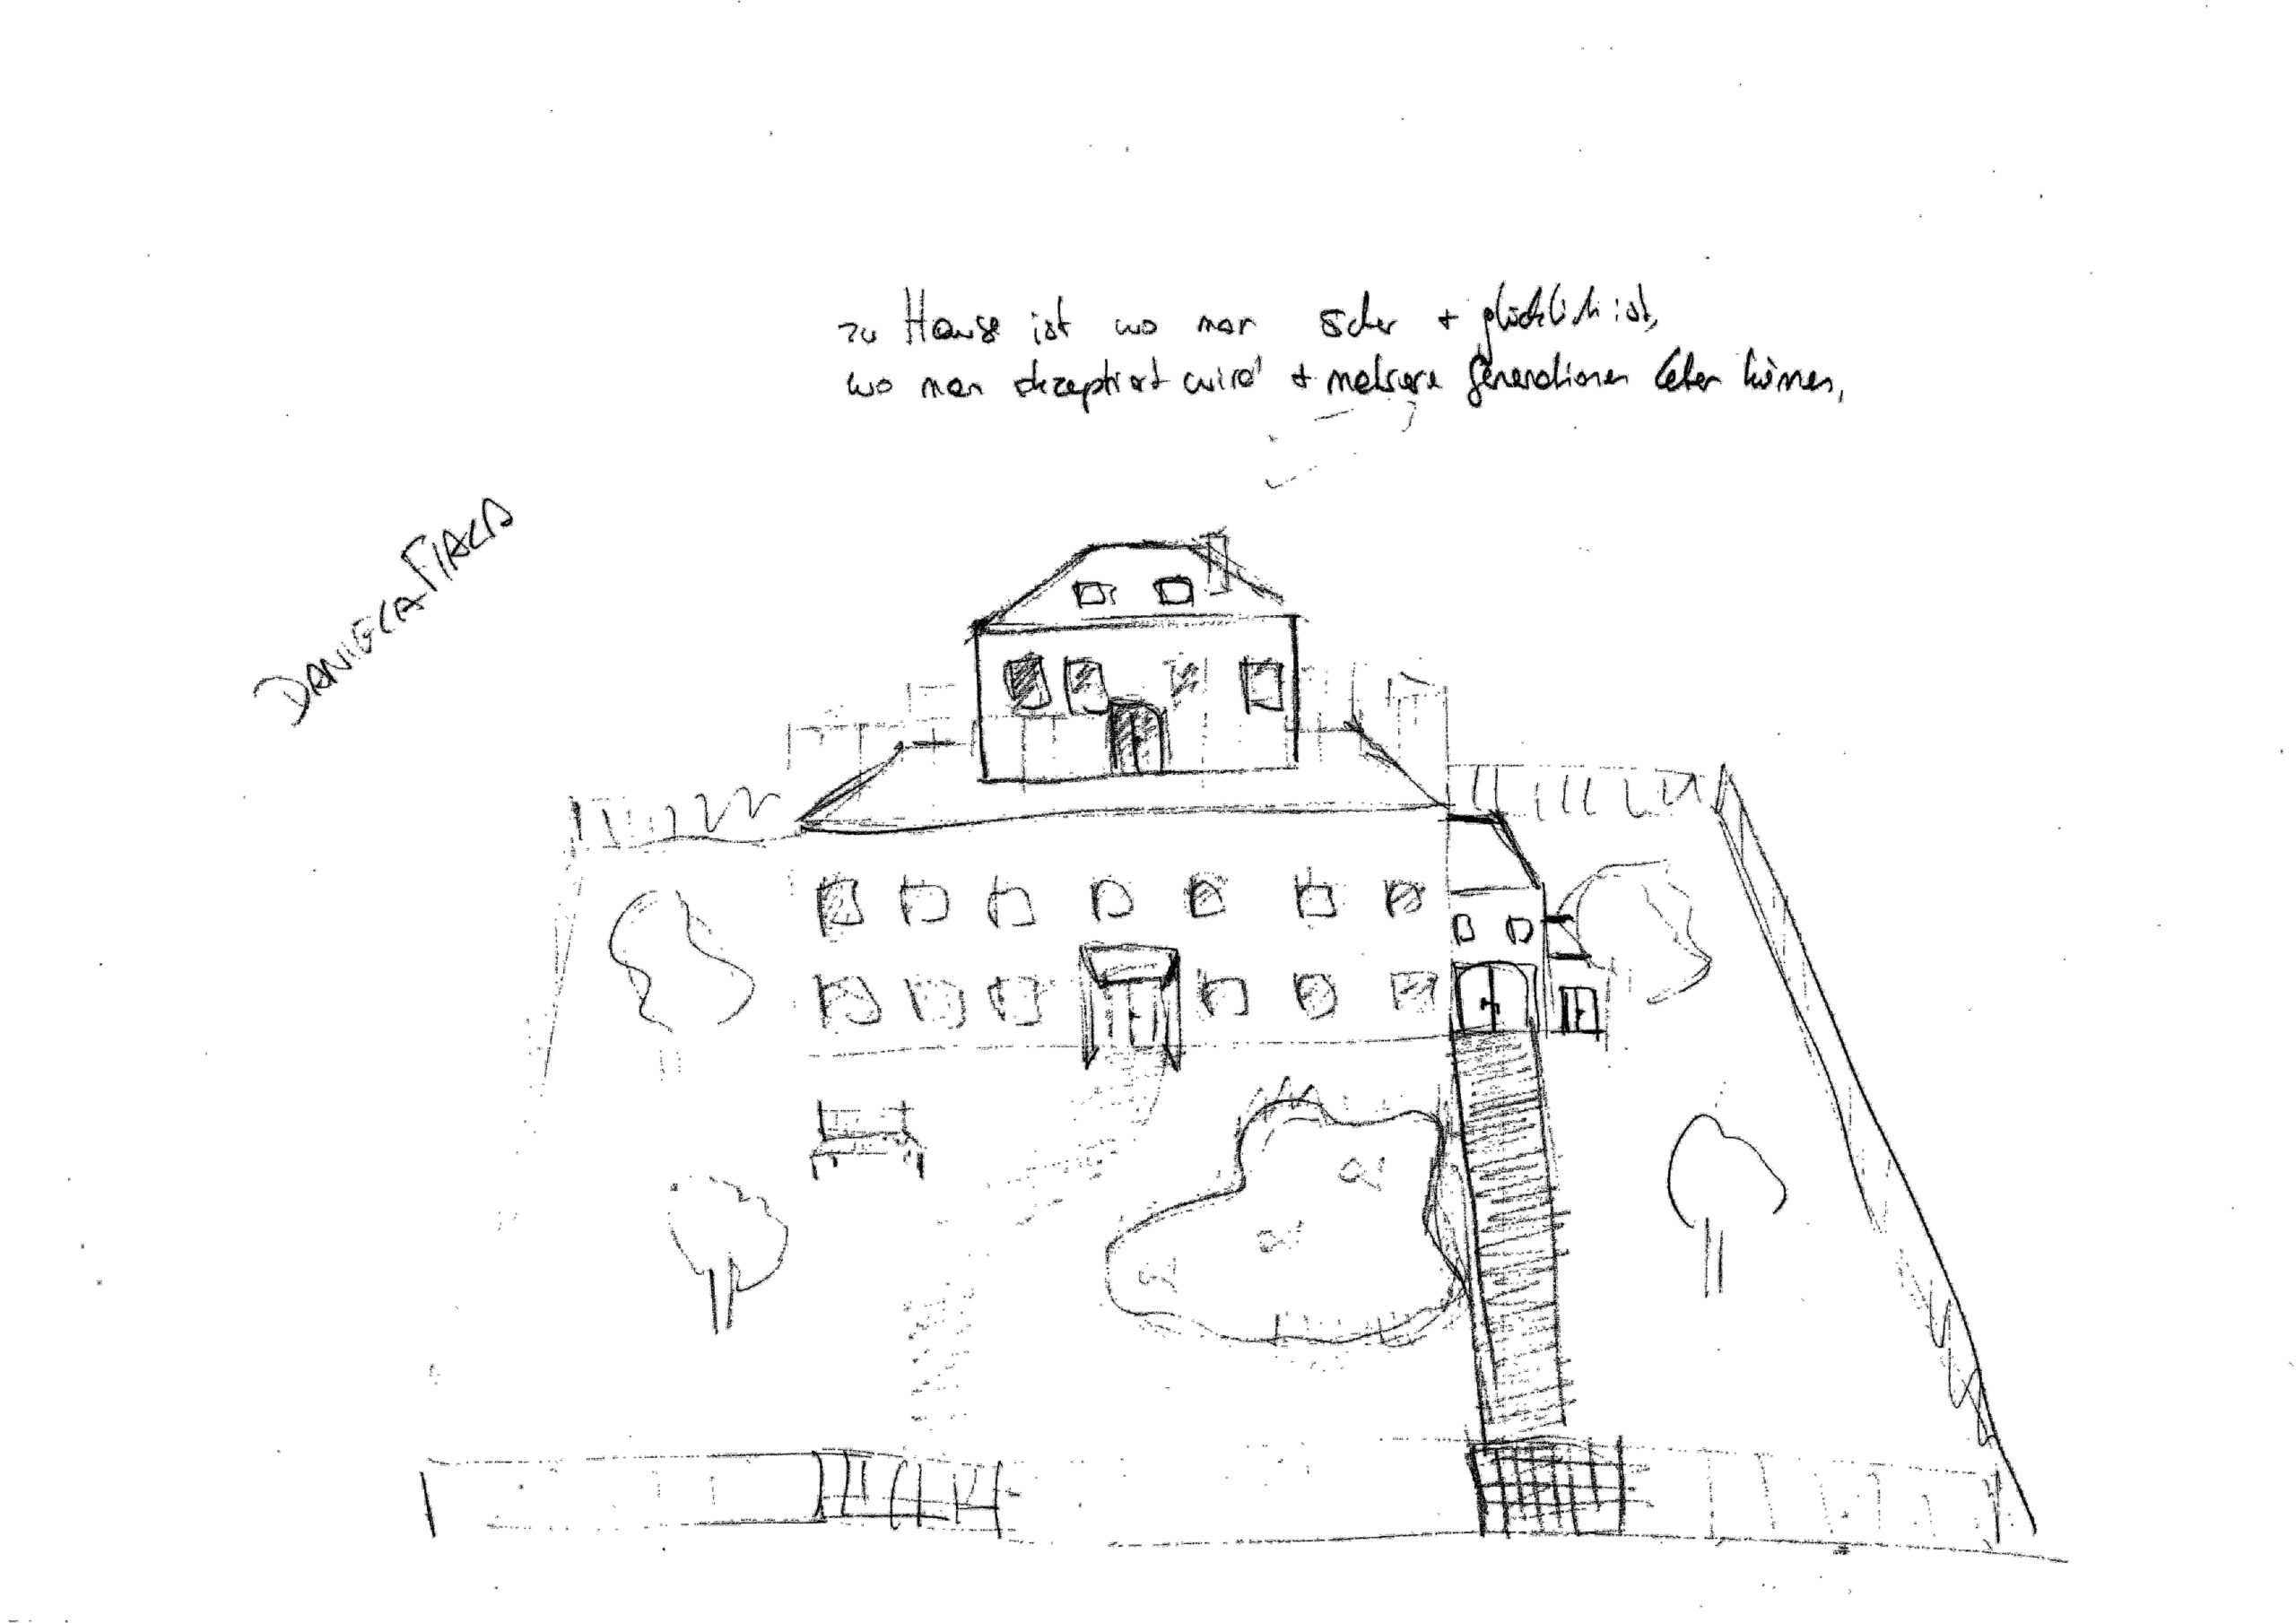 zu Hause ist wo man sicher + glücklich ist,
wo man akzeptiert wird + mehrere Generationen leben können,
DANIELA FIALA